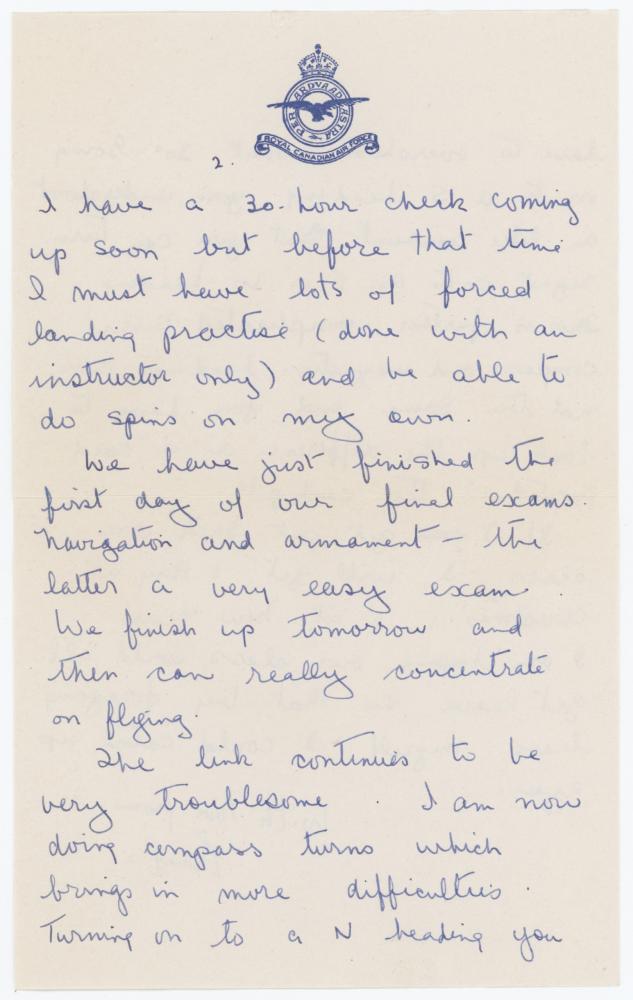 PER ARDUA AD ASTRA
ROYAL CANADIAN AIR FORCE
2.
I have a 30. hour check coming
up soon but before that time
I must have lots of forced
landing practise (done with an
instructor only) and be able to
do spins on my own.
We have just finished the
first day of our final exams.
Navigation and armament - the
latter a very easy exam.
We finish up tomorrow and
then can really concentrate
on flying.
The link continues to be
very troublesome. I am now
doing compass turns which
brings in more difficulties.
Turning on to a N heading you